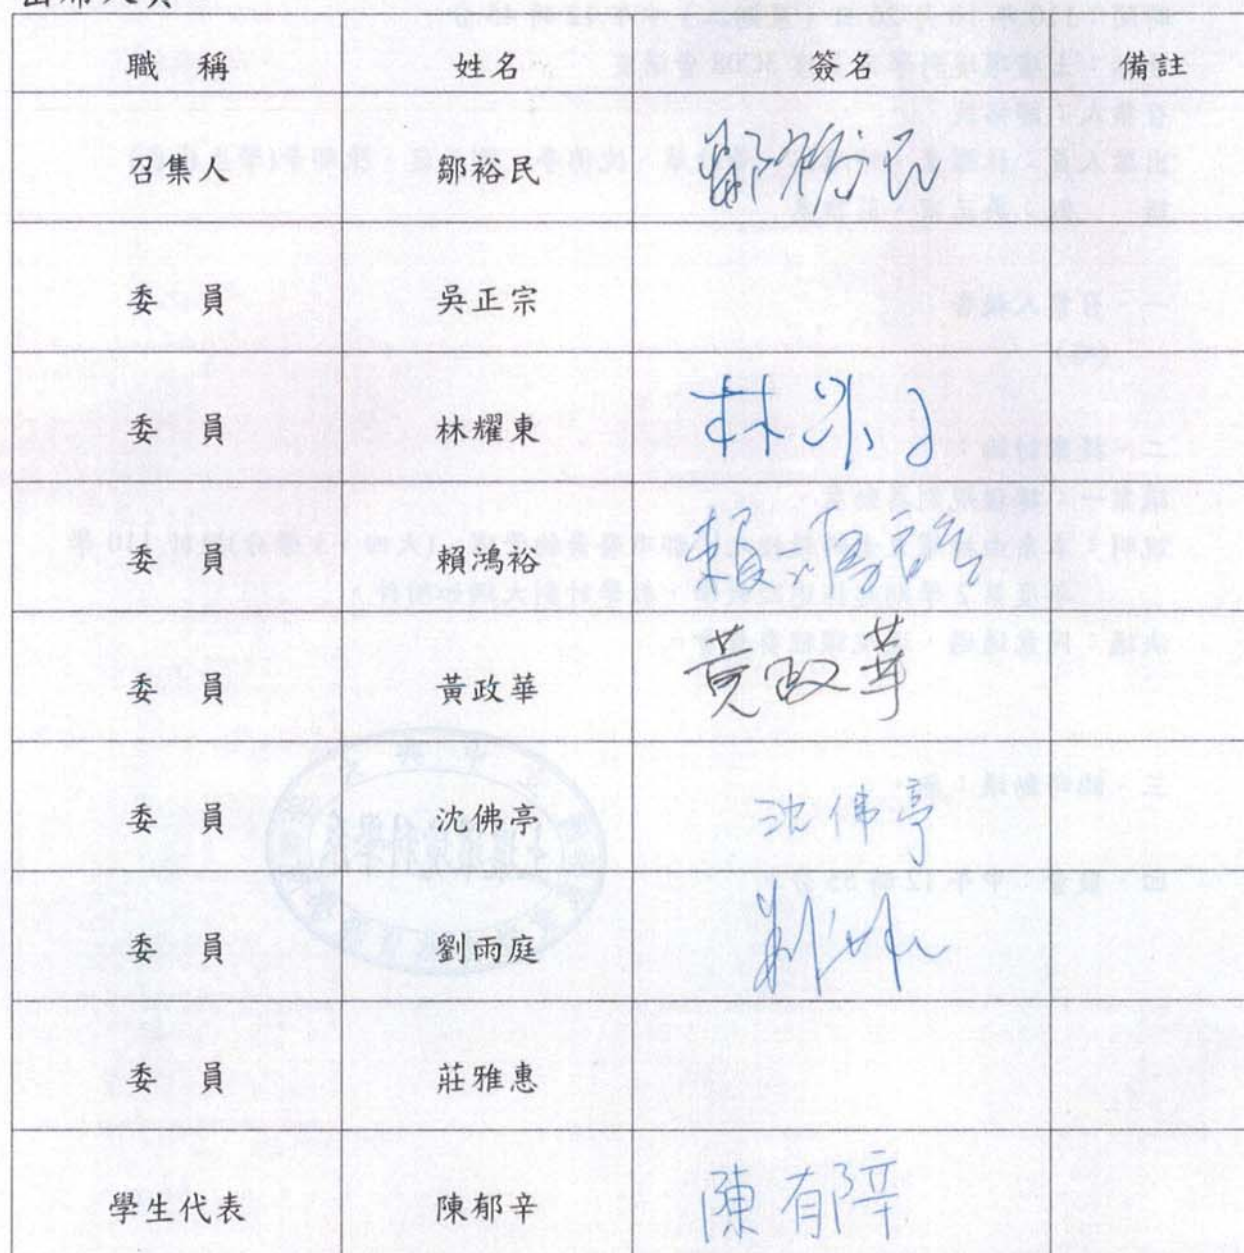 出席人員
職 稱 姓名 簽名 備註
召集人 鄒裕民 鄒裕民
委 員 吳正宗
委 員 林耀東 林
委 員 賴鴻裕 賴鴻裕
委 員 黃政華 黃政華
委 員 沈佛亭 沈佛亭
委 員 劉雨庭 劉
委 員 莊雅惠
學生代表 陳郁辛 陳有郁辛